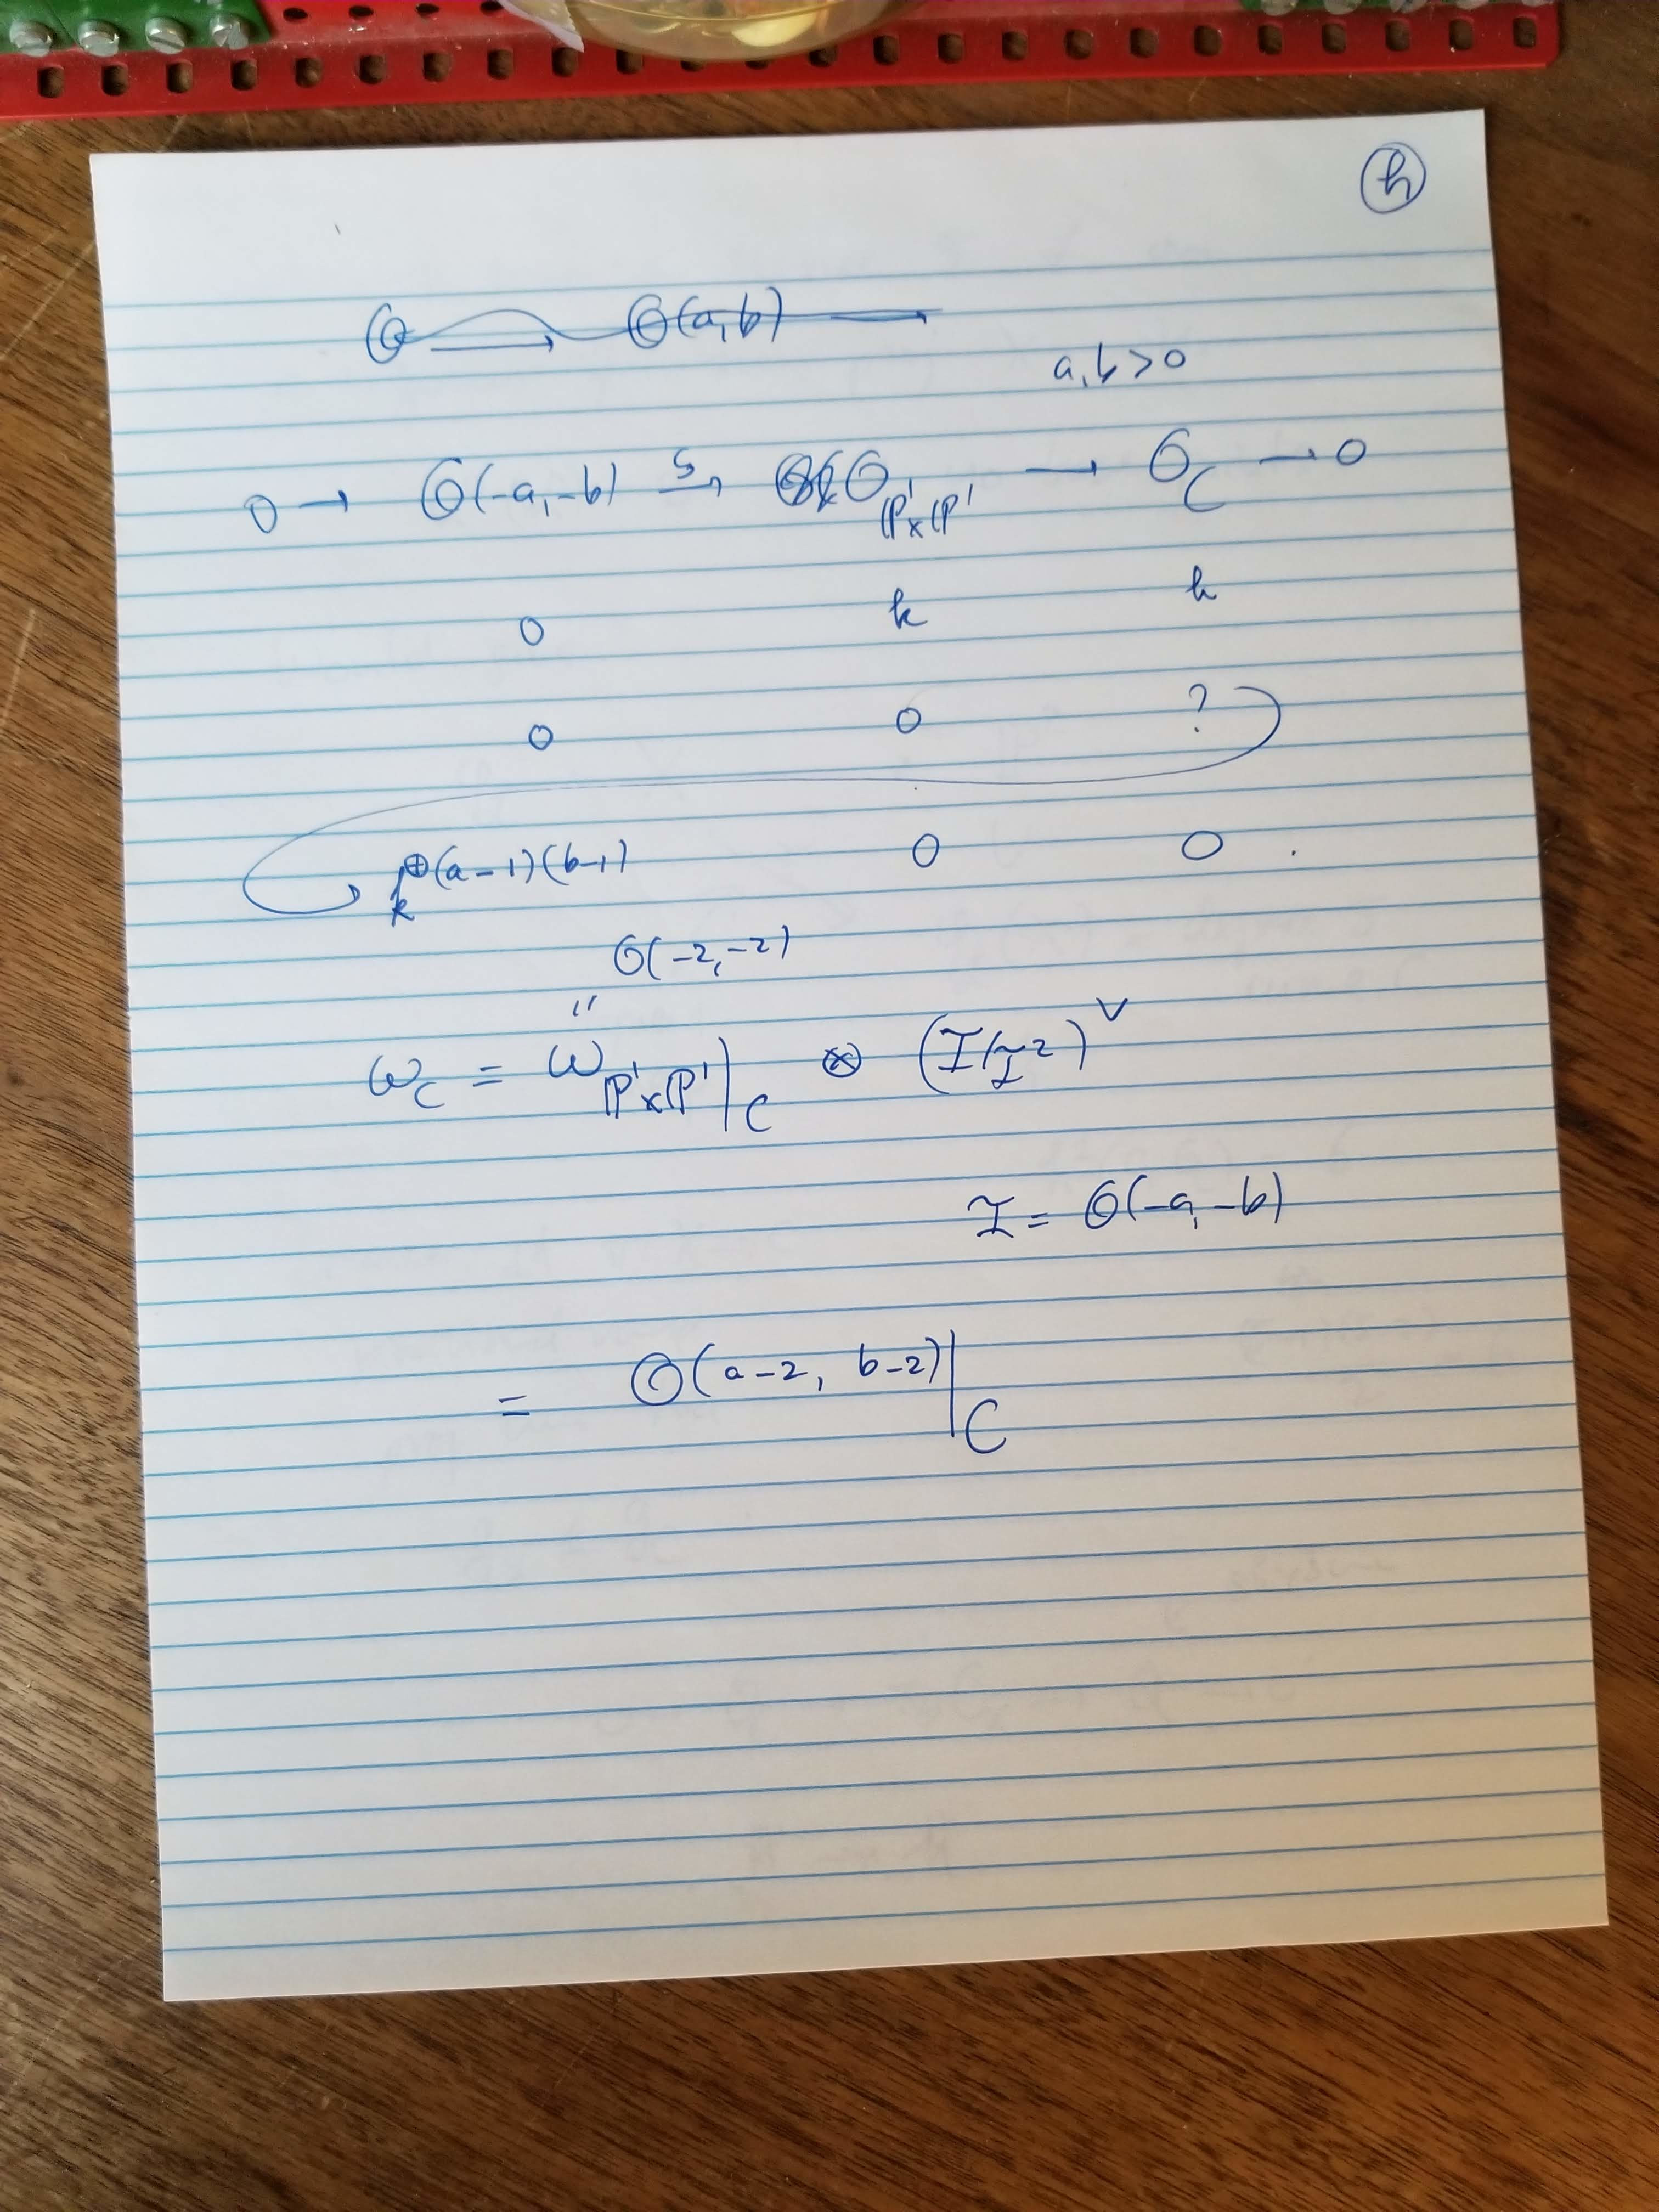 h
O → O(a,b) →
a, b > 0
0 → O(-a,-b) →^s O_{P¹×P¹} → O_C → 0
0 k k
0 0 ?
k^{⊕(a-1)(b-1)} 0 0 .
O(-2,-2)
"
ω_C = ω_{P¹×P¹}|_C ⊗ (I/I²)^∨
I = O(-a,-b)
= O(a-2, b-2)|_C